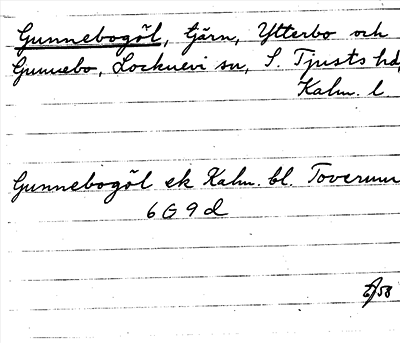 Gunnebogöl, tjärn, Ytterbo och
Gunnebo, Locknevi sn, S. Tjusts hd,
Kalm. l.
Gunnebogöl ek Kalm. bl. Toverum
6G9d